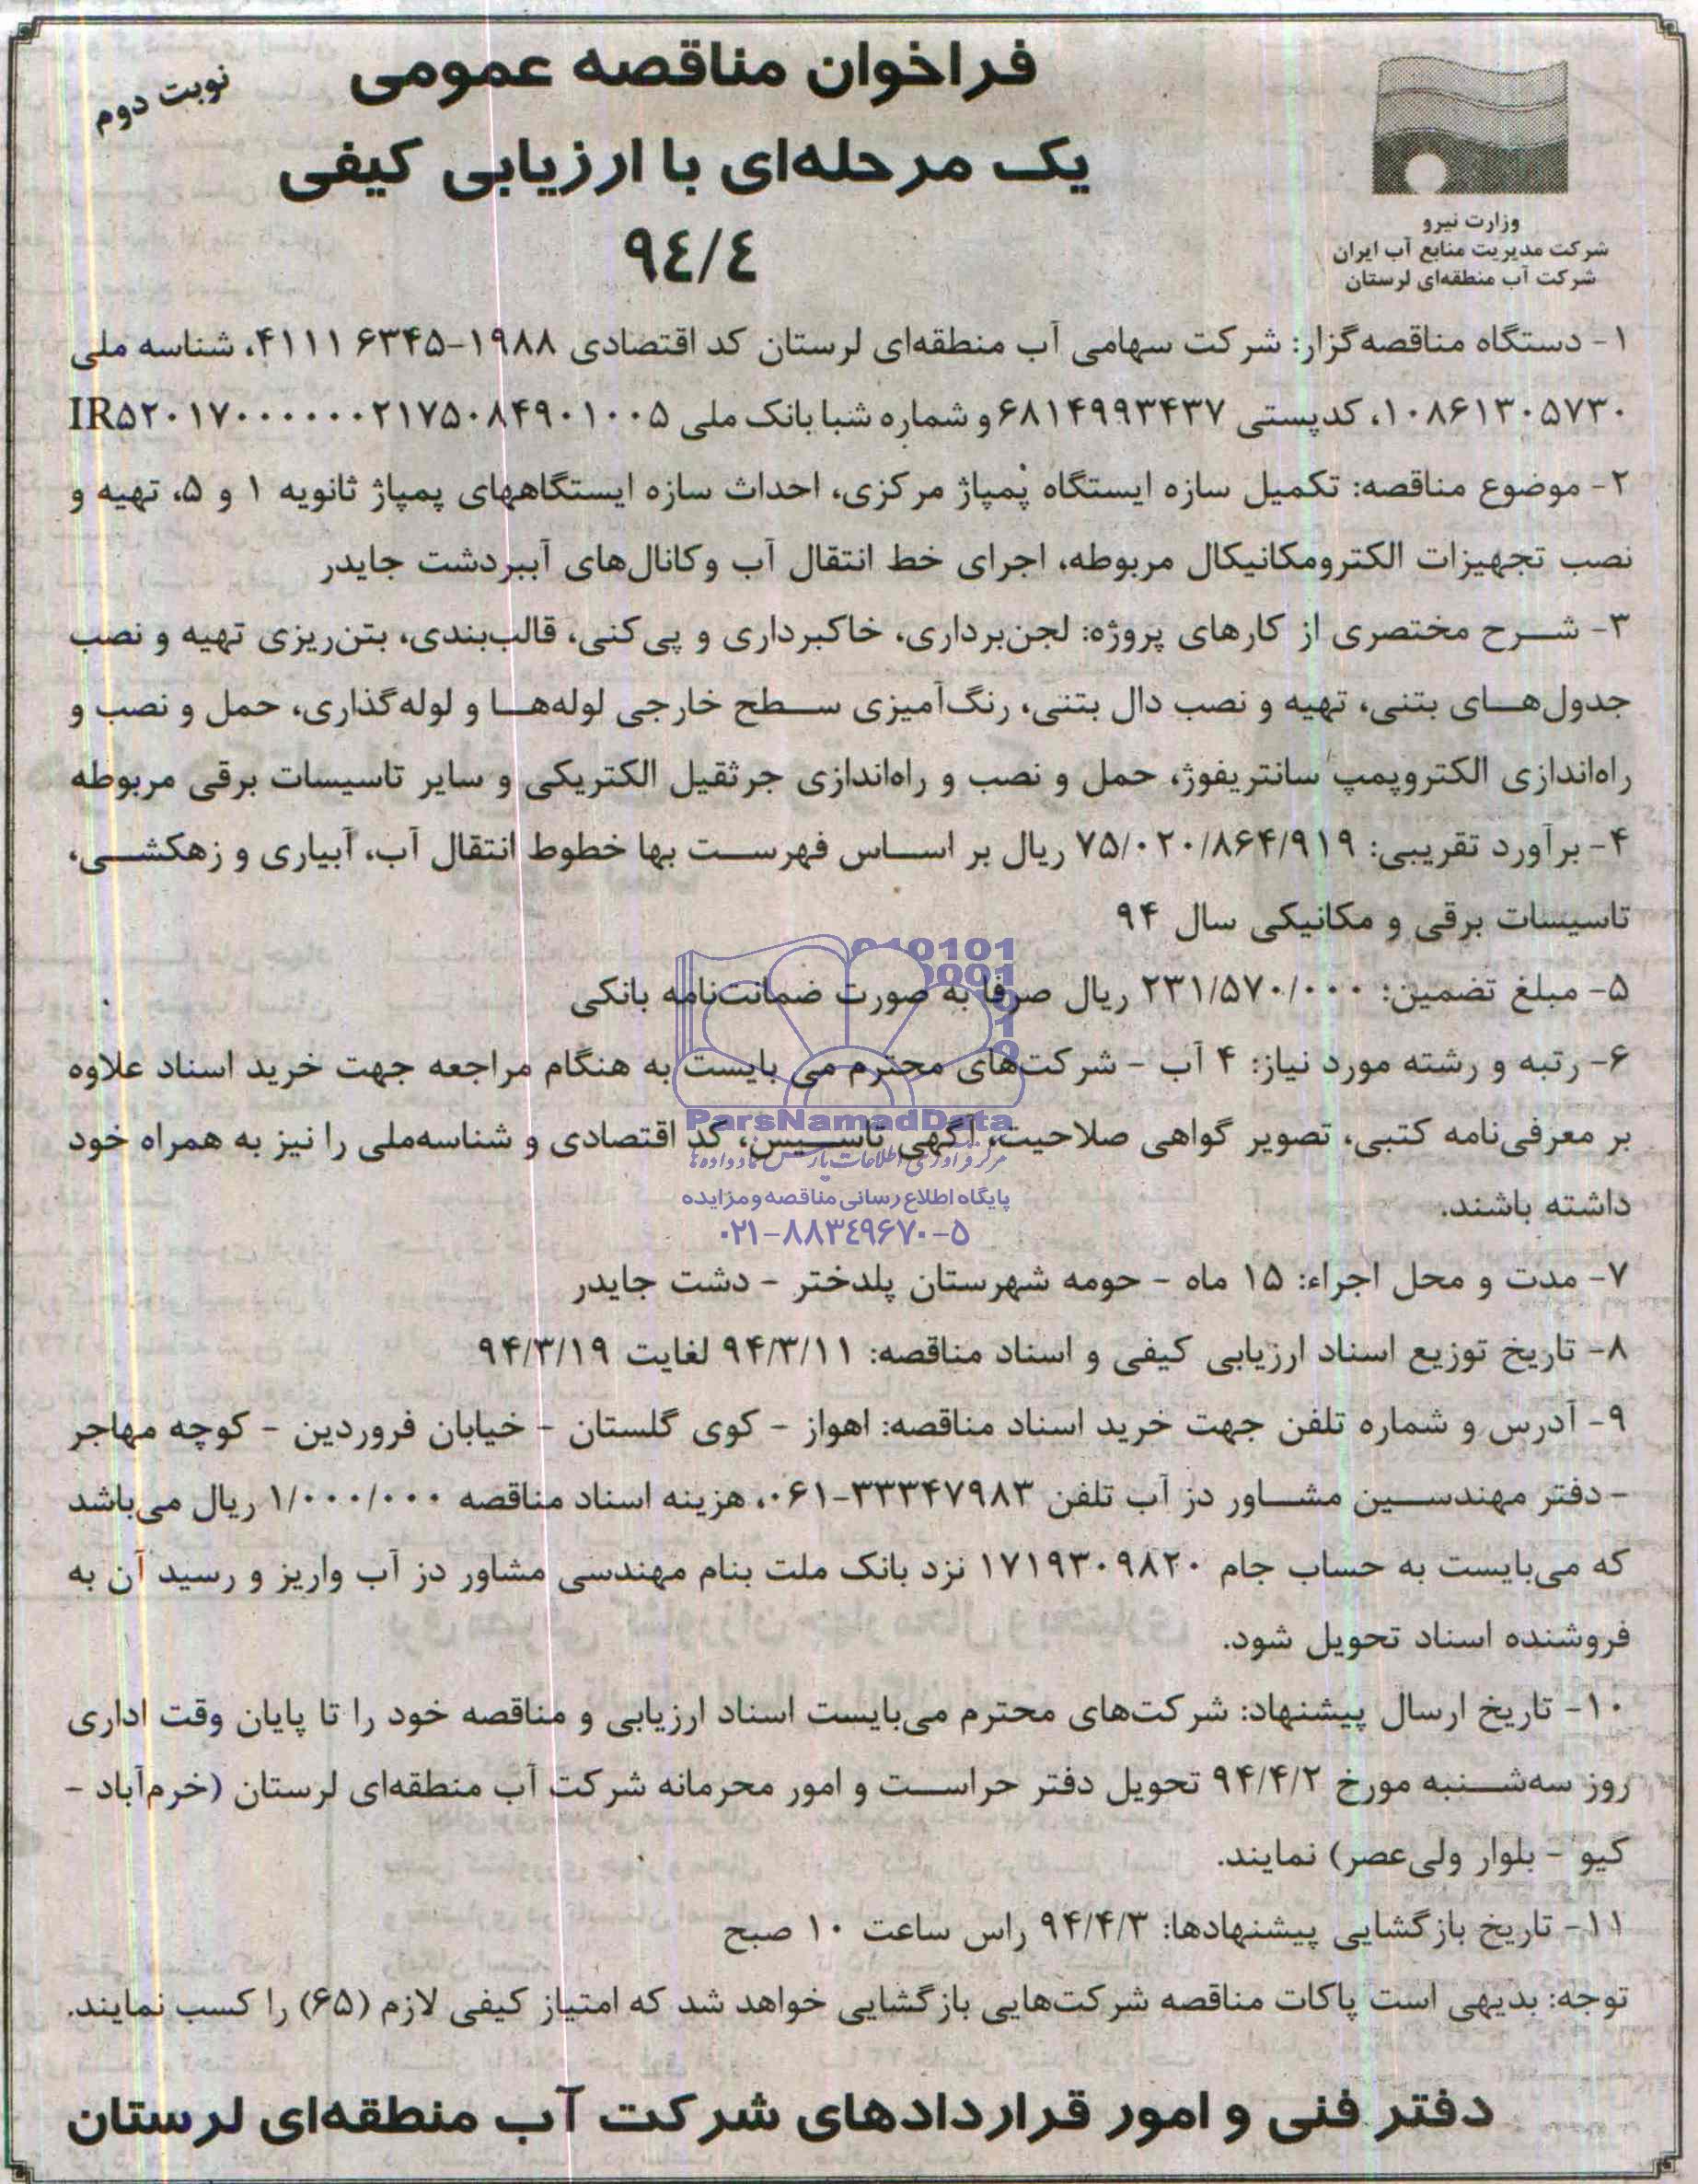 فراخوان مناقصه عمومی
نوبت دوم
یک مرحله‌ای با ارزیابی کیفی
۹٤/٤
وزارت نیرو
شرکت مدیریت منابع آب ایران
شرکت آب منطقه‌ای لرستان
۱- دستگاه مناقصه‌گزار: شرکت سهامی آب منطقه‌ای لرستان کد اقتصادی ۱۹۸۸-۶۳۴۵ ۴۱۱۱، شناسه ملی
۱۰۸۶۱۳۰۵۷۳۰، کدپستی ۶۸۱۴۹۹۳۴۳۷ و شماره شبا بانک ملی IR۵۲۰۱۷۰۰۰۰۰۰۰۲۱۷۵۰۸۴۹۰۱۰۰۵
۲- موضوع مناقصه: تکمیل سازه ایستگاه پمپاژ مرکزی، احداث سازه ایستگاههای پمپاژ ثانویه ۱ و ۵، تهیه و
نصب تجهیزات الکترومکانیکال مربوطه، اجرای خط انتقال آب و کانال‌های آببر دشت جایدر
۳- شرح مختصری از کارهای پروژه: لجن‌برداری، خاکبرداری و پی‌کنی، قالب‌بندی، بتن‌ریزی تهیه و نصب
جدول‌های بتنی، تهیه و نصب دال بتنی، رنگ‌آمیزی سطح خارجی لوله‌ها و لوله‌گذاری، حمل و نصب و
راه‌اندازی الکتروپمپ سانتریفوژ، حمل و نصب و راه‌اندازی جرثقیل الکتریکی و سایر تاسیسات برقی مربوطه
۴- برآورد تقریبی: ۷۵/۰۲۰/۸۶۴/۹۱۹ ریال بر اساس فهرست بها خطوط انتقال آب، آبیاری و زهکشی،
تاسیسات برقی و مکانیکی سال ۹۴
۵- مبلغ تضمین: ۲۳۱/۵۷۰/۰۰۰ ریال صرفا به صورت ضمانت‌نامه بانکی
۶- رتبه و رشته مورد نیاز: ۴ آب - شرکت‌های محترم می بایست به هنگام مراجعه جهت خرید اسناد علاوه
بر معرفی‌نامه کتبی، تصویر گواهی صلاحیت، آگهی تاسیس، کد اقتصادی و شناسه‌ملی را نیز به همراه خود
داشته باشند.
ParsNamadData
مرکز فرآوری اطلاعات پارس نماد داده‌ها
پایگاه اطلاع رسانی مناقصه و مزایده
۰۲۱-۸۸۳٤۹۶۷۰-۵
۷- مدت و محل اجراء: ۱۵ ماه - حومه شهرستان پلدختر - دشت جایدر
۸- تاریخ توزیع اسناد ارزیابی کیفی و اسناد مناقصه: ۹۴/۳/۱۱ لغایت ۹۴/۳/۱۹
۹- آدرس و شماره تلفن جهت خرید اسناد مناقصه: اهواز - کوی گلستان - خیابان فروردین - کوچه مهاجر
- دفتر مهندسین مشاور دز آب تلفن ۳۳۳۴۷۹۸۳-۰۶۱، هزینه اسناد مناقصه ۱/۰۰۰/۰۰۰ ریال می‌باشد
که می‌بایست به حساب جام ۱۷۱۹۳۰۹۸۲۰ نزد بانک ملت بنام مهندسی مشاور دز آب واریز و رسید آن به
فروشنده اسناد تحویل شود.
۱۰- تاریخ ارسال پیشنهاد: شرکت‌های محترم می‌بایست اسناد ارزیابی و مناقصه خود را تا پایان وقت اداری
روز سه‌شنبه مورخ ۹۴/۴/۲ تحویل دفتر حراست و امور محرمانه شرکت آب منطقه‌ای لرستان (خرم‌آباد -
کیو - بلوار ولی‌عصر) نمایند.
۱۱- تاریخ بازگشایی پیشنهادها: ۹۴/۴/۳ راس ساعت ۱۰ صبح
توجه: بدیهی است پاکات مناقصه شرکت‌هایی بازگشایی خواهد شد که امتیاز کیفی لازم (۶۵) را کسب نمایند.
دفتر فنی و امور قراردادهای شرکت آب منطقه‌ای لرستان